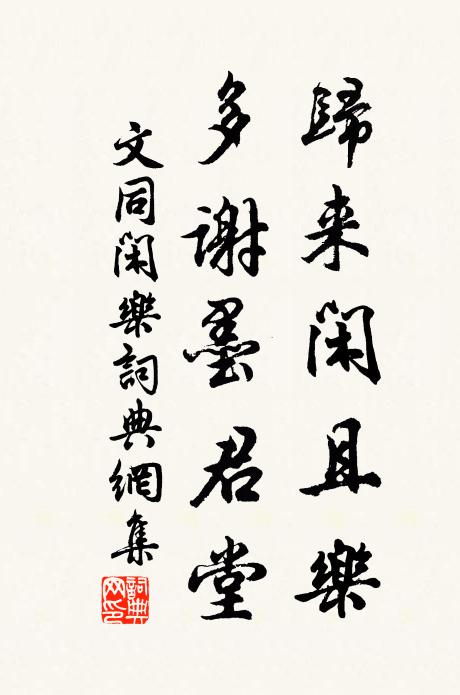 歸来閑且樂
多謝墨君堂
文同閑樂詞典網集
詞典网印